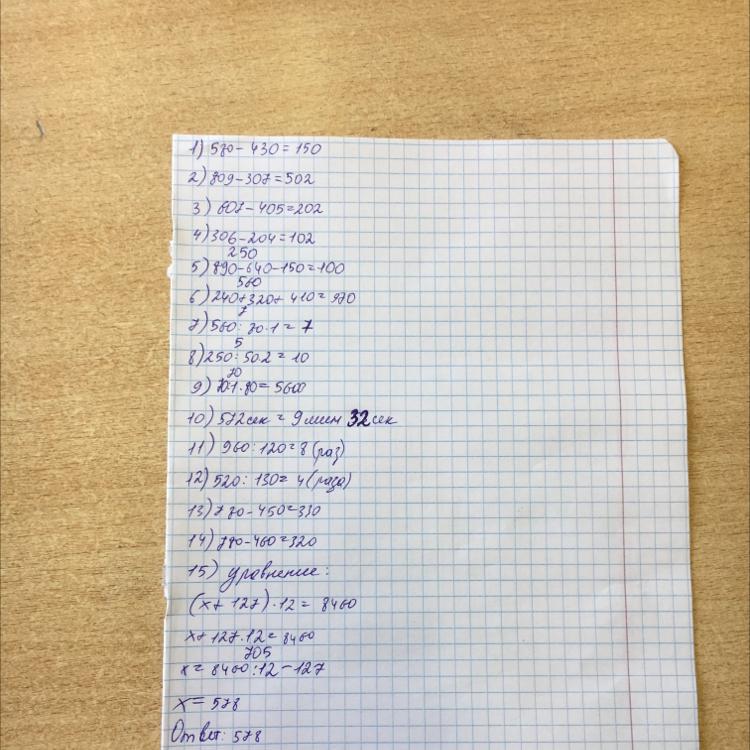 1) 580 - 430 = 150
2) 809 - 307 = 502
3) 607 - 405 = 202
4) 306 - 204 = 102
250
5) 890 - 640 - 150 = 100
560
6) 240 + 320 + 410 = 970
7
7) 560 : 80 · 1 = 7
5
8) 250 : 50 · 2 = 10
70
9) 70 · 1 · 80 = 5600
10) 572 сек = 9 мин 32 сек
11) 960 : 120 = 8 (раз)
12) 520 : 130 = 4 (раза)
13) 780 - 450 = 330
14) 780 - 460 = 320
15) уравнение:
(x + 127) · 12 = 8460
x + 127 · 12 = 8460
705
x = 8460 : 12 - 127
x = 578
Ответ: 578